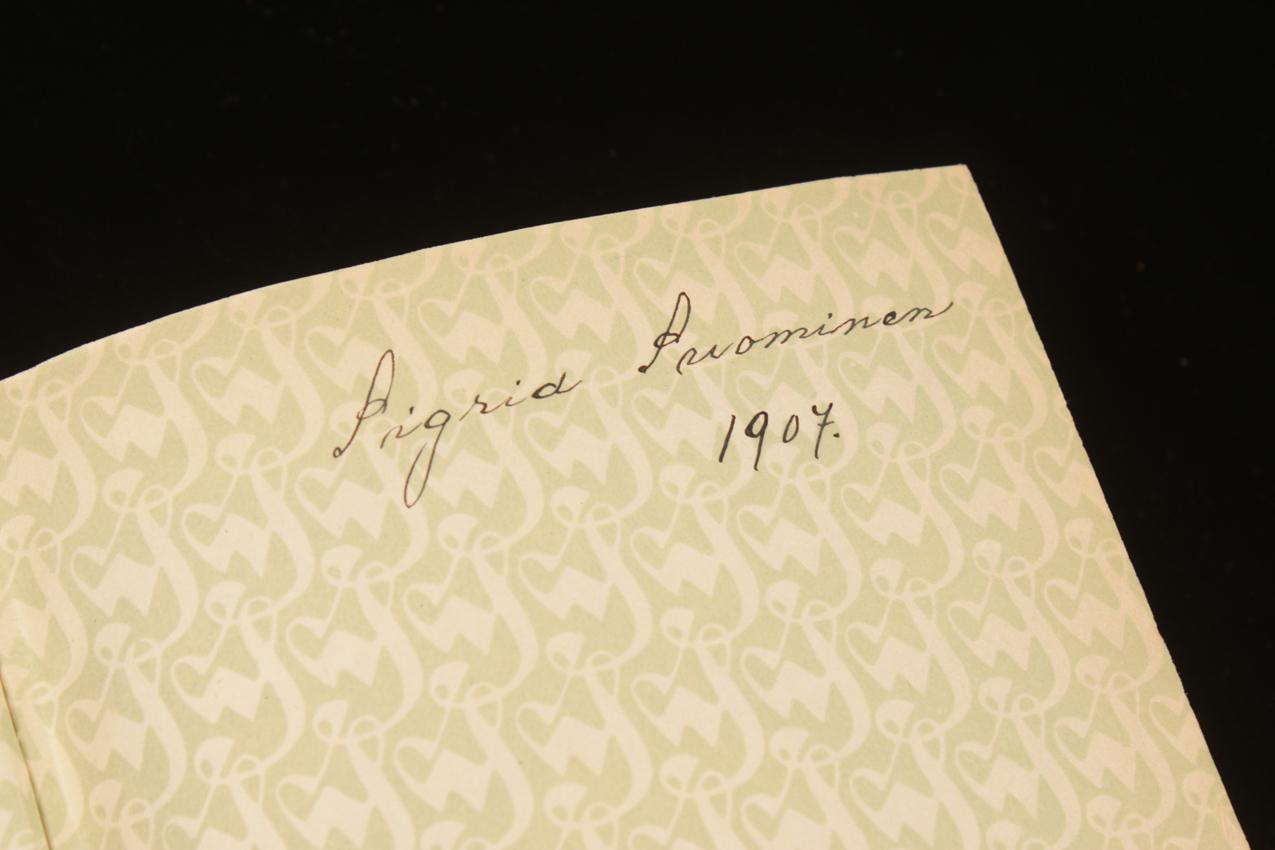 Sigrid Suominen
1907.